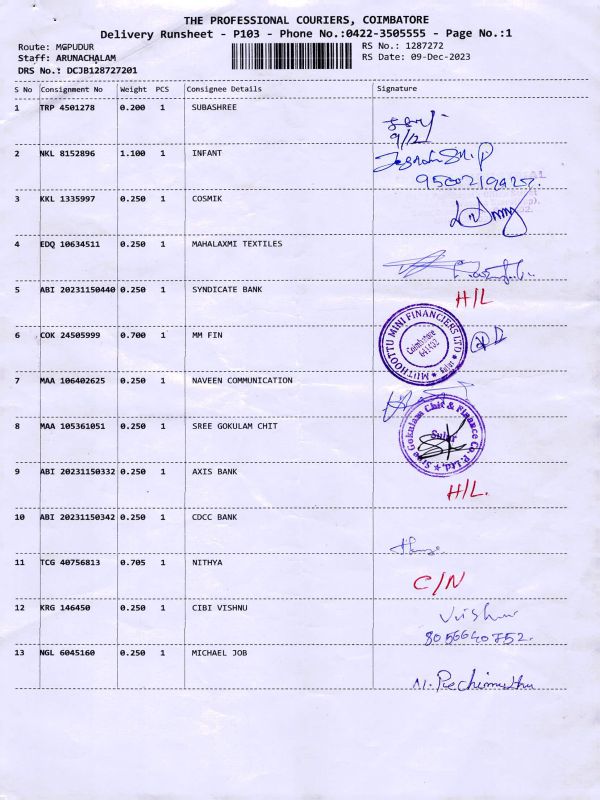 THE PROFESSIONAL COURIERS, COIMBATORE
Delivery Runsheet - P103 - Phone No.:0422-3505555 - Page No.:1
Route: MGPUDUR
RS No.: 1287272
Staff: ARUNACHALAM
RS Date: 09-Dec-2023
DRS No.: DCJB128727201
S No Consignment No Weight PCS Consignee Details Signature
1 TRP 4501278 0.200 1 SUBASHREE
9/12
2 NKL 8152896 1.100 1 INFANT
3 KKL 1335997 0.250 1 COSMIK
4 EDQ 10634511 0.250 1 MAHALAXMI TEXTILES
5 ABI 20231150440 0.250 1 SYNDICATE BANK
H/L
6 COK 24505999 0.700 1 MM FIN
MUTHOOTTU MINI FINANCIERS LTD
Coimbatore
641402
Sulur
7 MAA 106402625 0.250 1 NAVEEN COMMUNICATION
8 MAA 105361051 0.250 1 SREE GOKULAM CHIT
Sree Gokulam Chit & Finance Co. P. Ltd.
Sulur
9 ABI 20231150332 0.250 1 AXIS BANK
H/L.
10 ABI 20231150342 0.250 1 CDCC BANK
11 TCG 40756813 0.705 1 NITHYA
C/N
12 KRG 146450 0.250 1 CIBI VISHNU
Vishnu
8056640752.
13 NGL 6045160 0.250 1 MICHAEL JOB
M. Pechimuthu